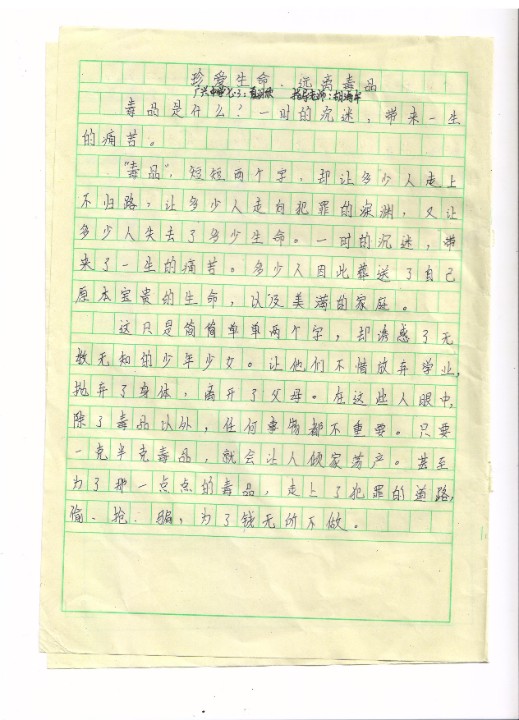 珍爱生命、远离毒品
指导老师：
毒品是什么？一时的沉迷，带来一生
的痛苦。
"毒品"，短短两个字，却让多少人走上
不归路，让多少人走向犯罪的深渊，又让
多少人失去了多少生命。一时的沉迷，带
来了一生的痛苦。多少人因此葬送了自己
原本宝贵的生命，以及美满的家庭。
这只是简简单单两个字，却诱惑了无
数无知的少年少女。让他们不惜放弃学业，
抛弃了身体，离开了父母。在这些人眼中，
除了毒品以外，任何事情都不重要。只要
一克半克毒品，就会让人倾家荡产。甚至
为了那一点点的毒品，走上了犯罪的道路，
偷、抢、骗，为了钱无所不做。